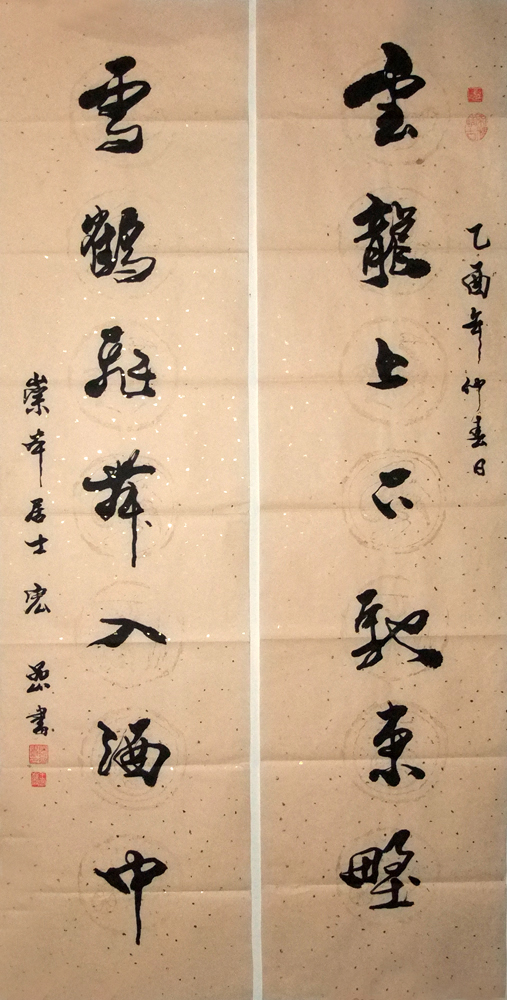 乙酉年仲春日
雲龍上下馳東野
雪鶴起舞入酒中
崇本居士宏
書